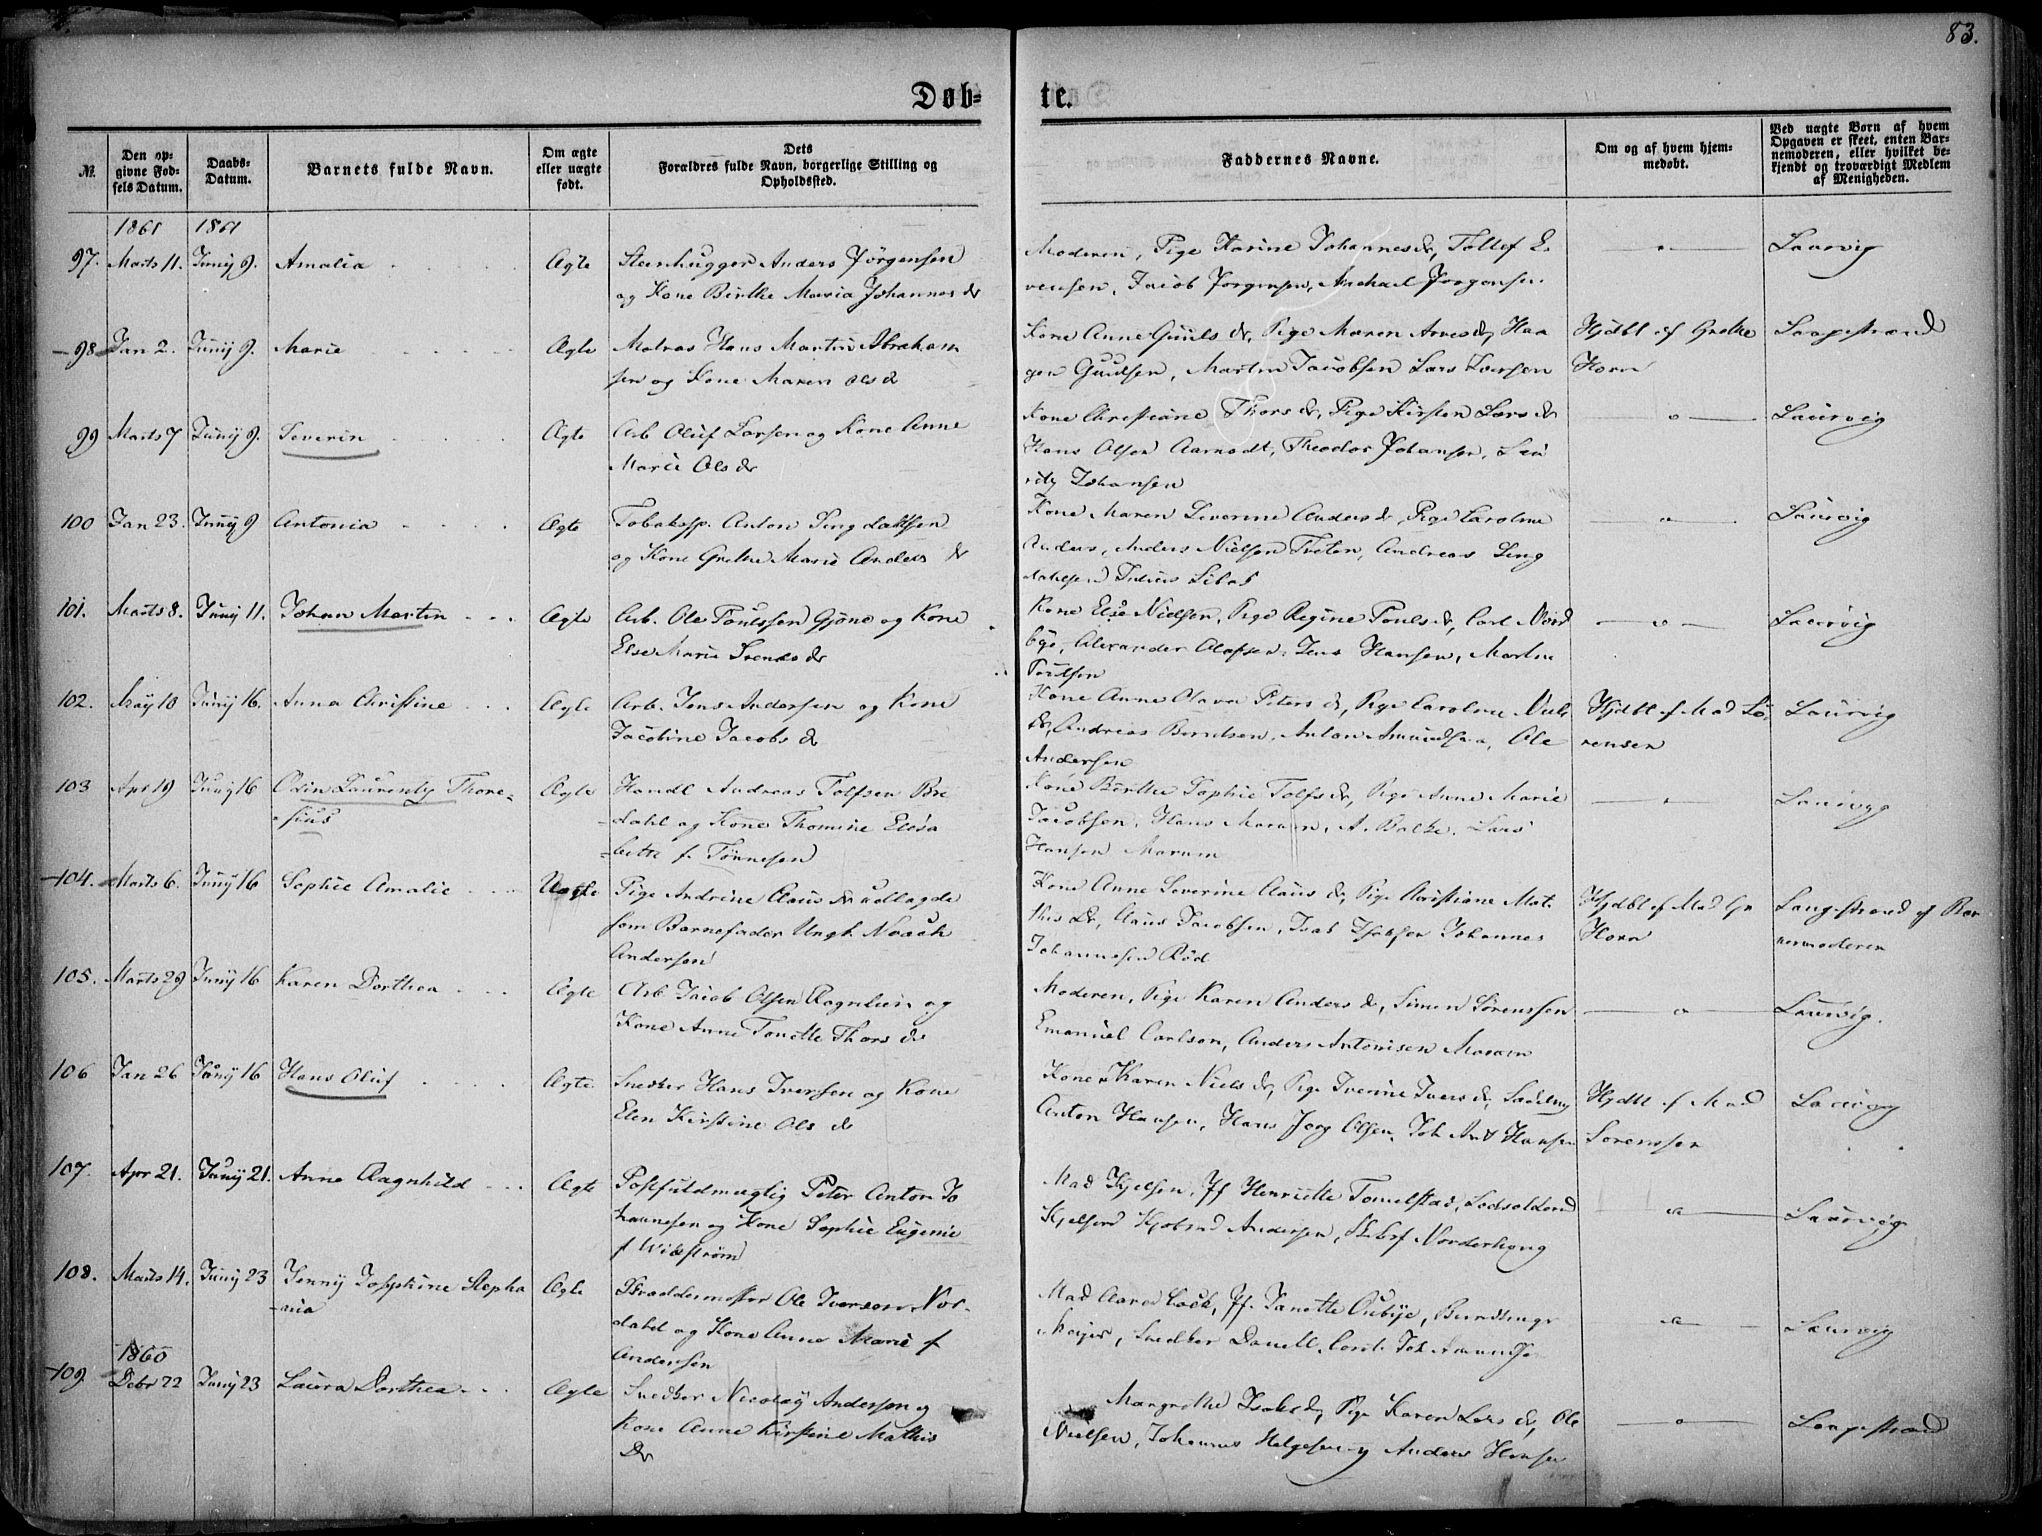 83.
Døb-
te.
№
Den op-
givne Fød-
sels Datum.
Daabs-
Datum.
Barnets fulde Navn.
Om ægte
eller uægte
født.
Dets
Forældres fulde Navn, borgerlige Stilling og
Opholdssted.
Faddernes Navne.
Om og af hvem hjem-
medøbt.
Ved uægte Børn af hvem
Opgaven er skeet, enten Bar-
nemoderen, eller hvilket be-
kjendt og troværdigt Medlem
af Menigheden.
1861 1861
97. Marts 11. Junij 9. Amalia Ægte Steenhugger Anders Jørgensen
og Kone Birthe Maria Johannes dr
Moderen, Pige Karine Johannesdr, Tollef E-
vensen, Jacob Jørgensen, Michael Jørgensen
Laurvig
98 Jan 2. Junij 9. Marie Ægte Matros Hans Martin Abraham
sen og Kone Maren Olsdr
Kone Anne Guuls dr, Pige Maren Arvesdr, Haa
gen Guulsen, Martin Jacobsen Lars Larsen
Hjdbt af Grethe
Horn
Langestrand
99 Marts 7 Junij 9. Severin Ægte Arb Oluf Larsen og Kone Anne
Marie Ols dr
Kone Christiane Thors dr, Pige Kirsten Lars dr
Hans Olsen Aamodt, Theodor Johansen, Lau
ritz Johansen
Laurvig
100 Jan 23. Junij 9 Antonia Ægte Tobaksp. Anton Lingdahlsen
og Kone Grethe Marie Anders dr
Kone Maren Severine Anders dr, Pige Caroline
Anders, Anders Nielsen Tveten, Andreas Ling
dahlsen Julius
Laurvig
101. Marts 8. Junij 11. Johan Martin Ægte Arb. Ole Poulssen Gjone og Kone
Else Marie Svends dr
Kone Else Nielsen, Pige Regine Pouls dr, Carl Nord
bye, Alexander Olafsen, Jens Hansen, Martin
Poulsen
Laurvig
102. May 10 Junij 16. Anna Christine Ægte Arb. Jens Andersen og Kone
Jacobine Jacobs dr
Kone Anne Olava Peters dr, Pige Caroline Niels
dr, Andreas Berntsen, Anton Amundsen, Ole
Andersen
Hjdbt af Mad Lo-
rensen
Laurvig
103 Apr 19 Junij 16 Odin Laurentz Thore-
sius
Ægte Handl Andreas Tolfsen Bre
dahl og Kone Thomine Elisa
bette f. Tønnesen
Kone Birthe Sophie Tolfsdr, Pige Anne Marie
Jacobsen, Hans Maram, A. Balke, Lars
Hansen Maram
Laurvig
104. Marts 6. Junij 16 Sophie Amalie Uægte Pige Andrine Claus dr udlagde
som Barnefader Ungk. Noach
Andersen
Kone Anne Severine Claus dr, Pige Christiane Mat-
this Dr, Claus Jacobsen, Isak Isaksen Johannes
Johannesen Rød
Hjdbt af Mad Gr
Horn
Langestrand af Bar
nemoderen
105. Marts 29 Junij 16 Karen Dorthea Ægte Arb Jacob Olsen Ragnlien og
Kone Anne Tonette Thors dr
Moderen, Pige Karen Anders dr, Simen Sørenssen
Emanuel Carlsen, Anders Antonisen Maram
Laurvig.
106 Jan 26 Junij 16 Hans Oluf Ægte Snedker Hans Iversen og Kone
Elen Kirstine Ols dr
Kone Karen Niels dr, Pige Iverine Ivers dr,
Anton Hansen, Hans Jørg Olsen, Joh Ant Hansen
Hjdbt af Mad
Sørenssen
Laurvig
107. Apr 21. Junij 21. Anna Ragnhild Ægte Postfuldmægtig Peter Anton Jo
hannesen og Kone Sophie Eugenie
f Widstrøm
Mad Kjelsen, Jf Henriette Tomelstad, Lodsoldermd
Kjelsen Kjøbmd Andersen, Norderhoug
Laurvig
108. Marts 14. Junij 23 Jenny Josephine Stepha
-nia
Ægte Skræddermester Ole Iversen Nor-
dahl og Kone Anne Marie f
Andersen
Mad Aarodback, Jf. Janette Oubye,
Meyer, Snedker Danell, Joh Amundsen
Laurvig
1860
109 Debr 22 Junij 23 Laura Dorthea Ægte Snedker Nicolay Andersen og
Kone Anne Kirstine Mathis
Dr
Margrethe Isaksdr, Pige Karen Lars dr, Ole
Nielsen, Johannes Helgesen og Anders Hansen
Langestrand